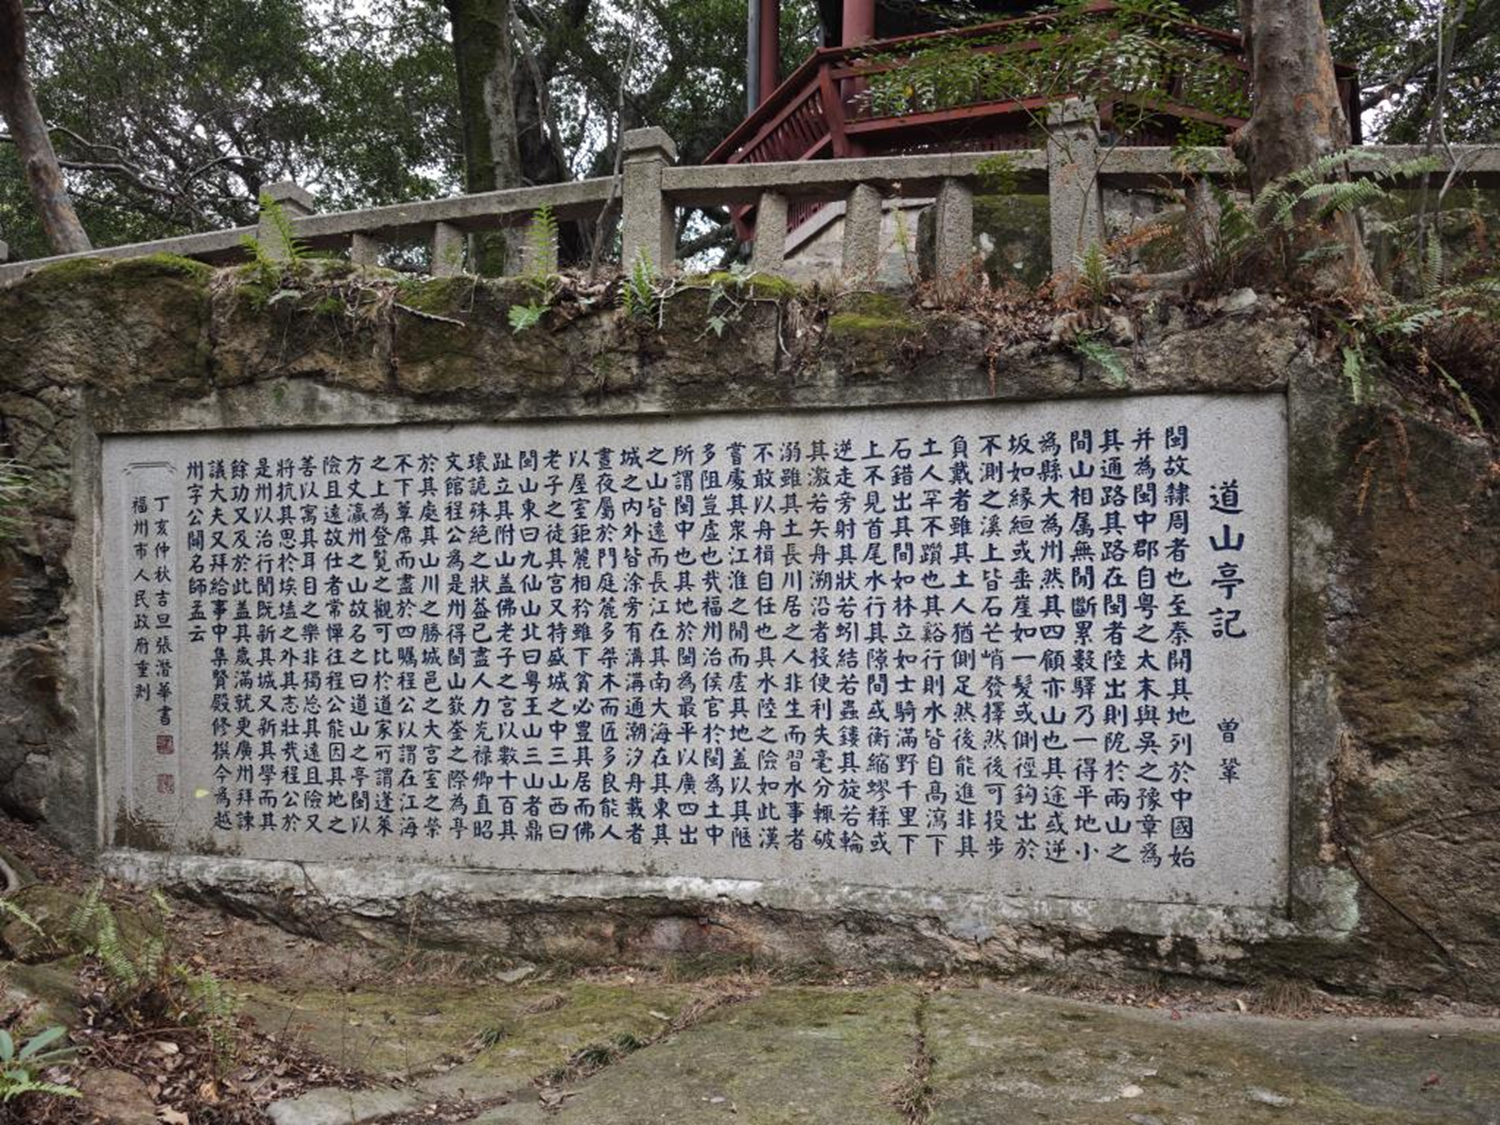 道山亭記
曾鞏
閩故隸周者也至秦開其地列於中國始
并為閩中郡自粵之太末與吳之豫章為
其通路其路在閩者陸出則阸於兩山之
間山相属無間斷累數驛乃一得平地小
為縣大為州然其四顧亦山也其途或逆
坂如緣絙或垂崖如一髮或側徑鈎出於
不測之溪上皆石芒峭發擇然後可投步
負戴者雖其土人猶側足然後能進非其
土人罕不躓也其谿行則水皆自高瀉下
石錯出其間如林立如士騎滿野千里下
上不見首尾水行其隙間或衡縮蟉糅或
逆走旁射其狀若蚓結若蟲鏤其旋若輪
其激若矢舟溯沿者投便利失毫分輒破
溺雖其土長川居之人非生而習水事者
不敢以舟楫自任也其水陸之險如此漢
嘗處其衆江淮之間而虛其地蓋以其陿
多阻豈虛也哉福州治侯官於閩為土中
所謂閩中也其地於閩為最平以廣四出
之山皆遠而長江在其南大海在其東其
城之內外皆涂旁有溝溝通潮汐舟載者
晝夜屬於門庭麓多桀木而匠多良能人
以屋室鉅麗相矜雖下貧必豐其居而佛
老子之徒其宮又特盛城之中三山西曰
閩山東曰九仙山北曰粵王山三山者鼎
趾立其附山蓋佛老子之宮以數十百其
瓌詭殊絕之狀蓋已盡人力光禄卿直昭
文館程公為是州得閩山嶔崟之際為亭
於其處其山川之勝城邑之大宮室之榮
不下簟席而盡於四矚程公以謂在江海
之上為登覽之觀可比於道家所謂蓬萊
方丈瀛州之山故名之曰道山之亭閩以
險且遠故仕者常憚往程公能因其地之
善以寓其耳目之樂非獨忘其遠且險又
將抗其思於埃壒之外其志壯哉程公於
是州以治行聞既新其城又新其學而其
餘功又及於此蓋其歲滿就更廣州拜諫
議大夫又拜給事中集賢殿修撰今為越
州字公闢名師孟云
丁亥仲秋吉旦張潛華書
福州市人民政府重刻